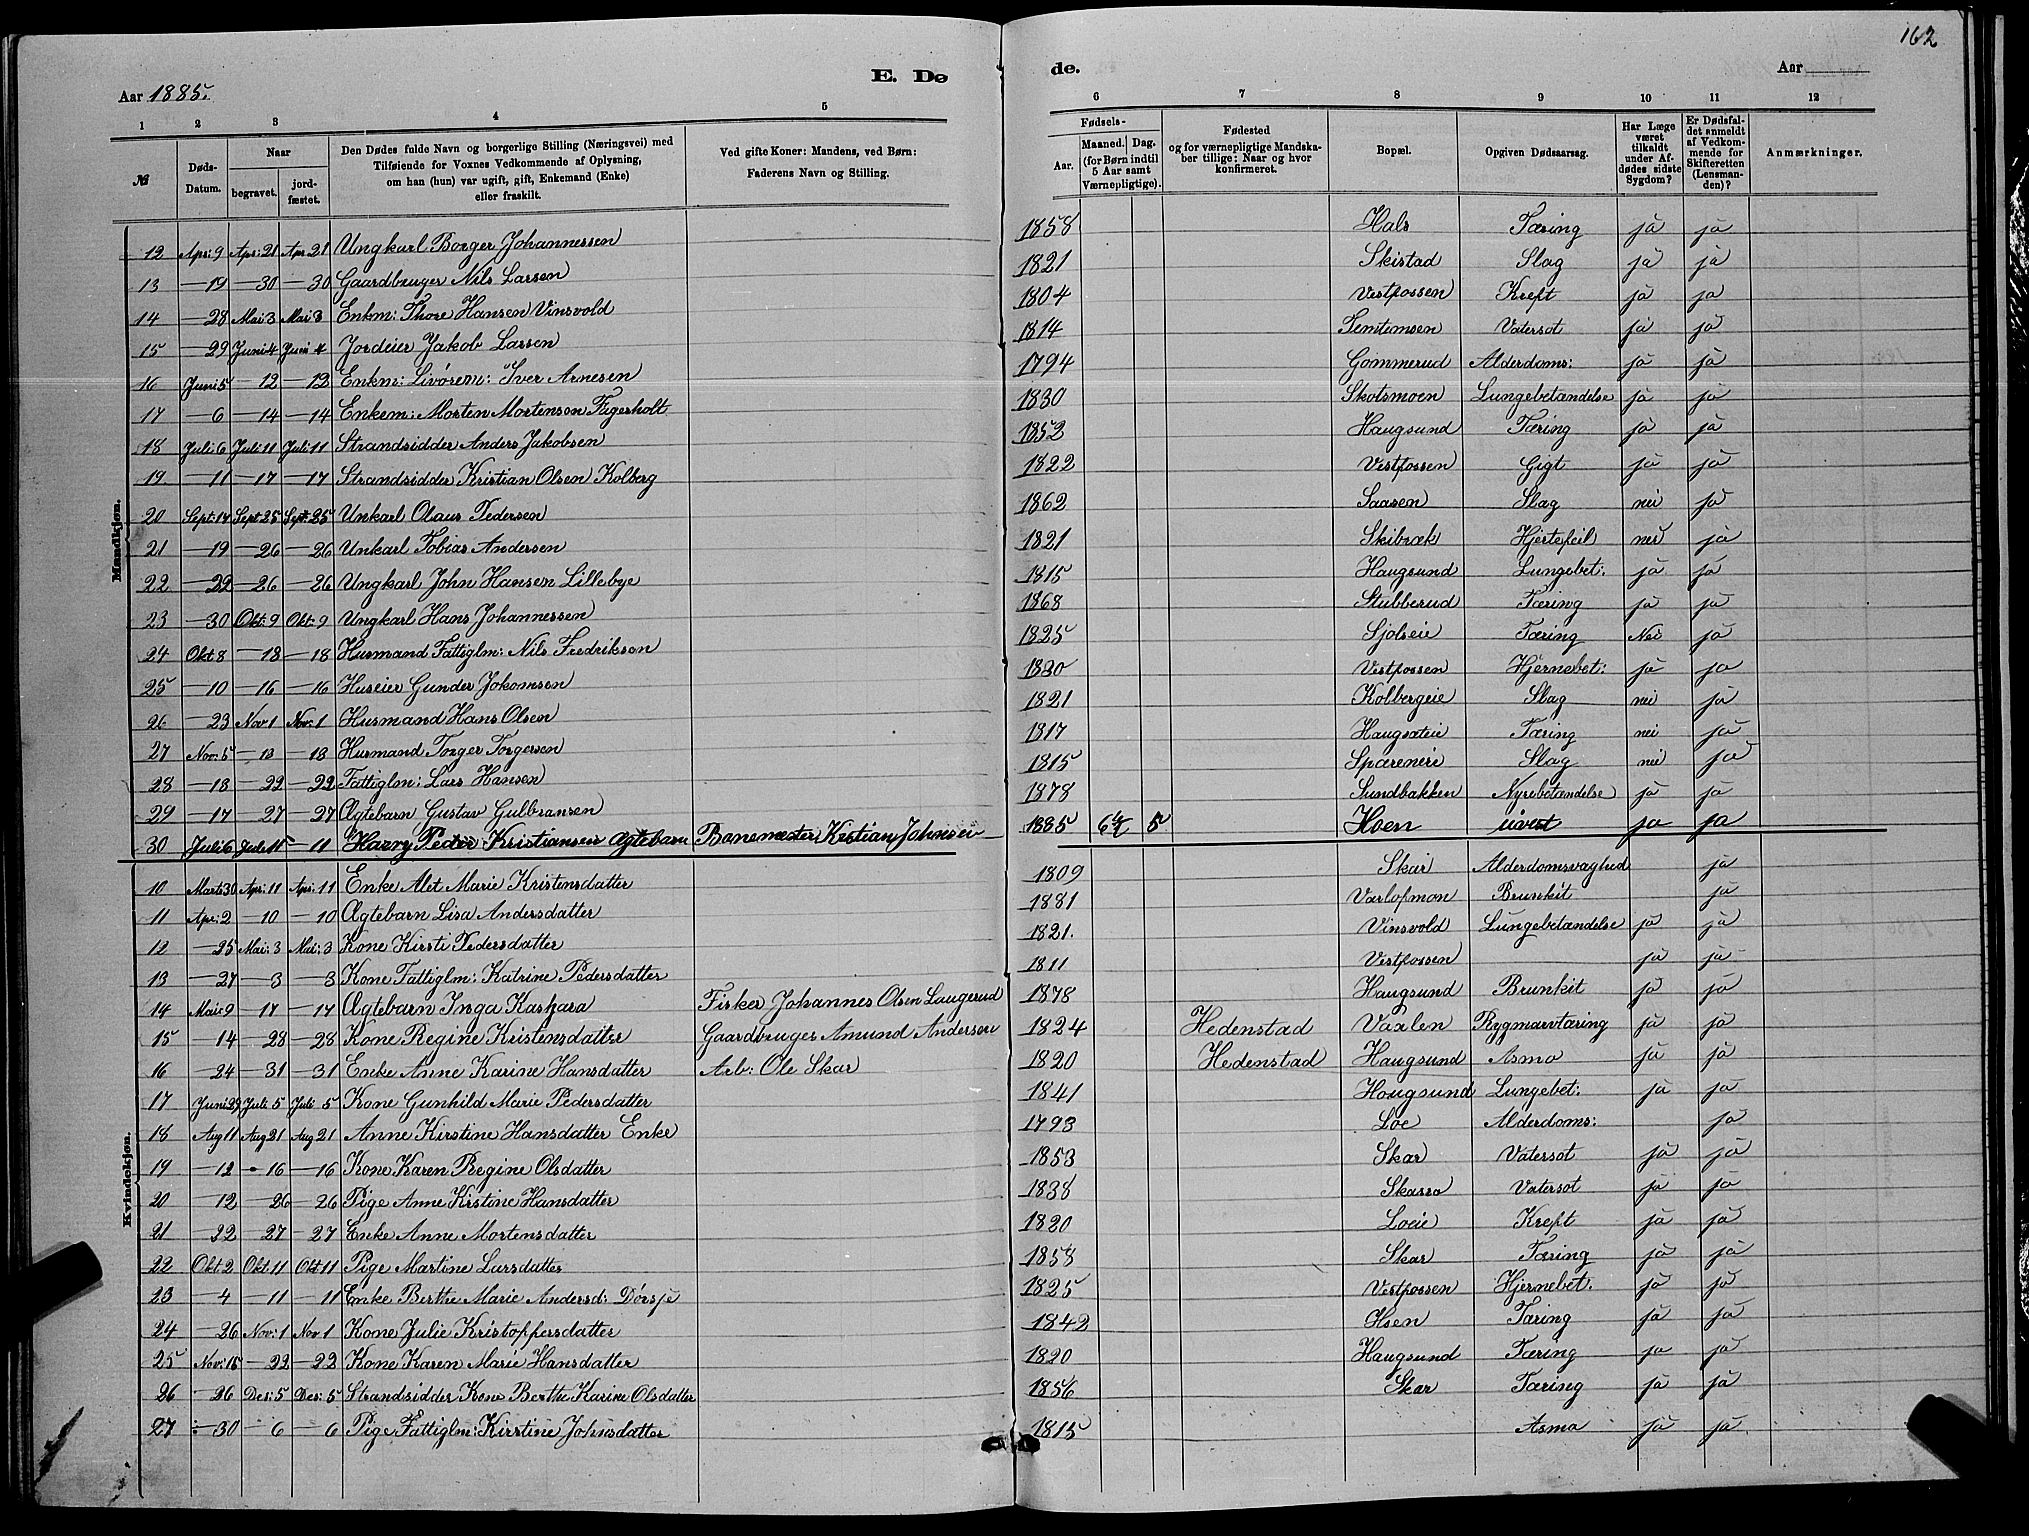 162
E. Dø
de.
Aar 1885.
Aar
1 2 3 4 5 6 7 8 9 10 11 12
№
Døds-Datum.
Naar
begravet.
jord-fæstet.
Den Dødes fulde Navn og borgerlige Stilling (Næringsvei) med
Tilføiende for Voxnes Vedkommende af Oplysning,
om han (hun) var ugift, gift, Enkemand (Enke)
eller fraskilt.
Ved gifte Koner: Mandens, ved Børn:
Faderens Navn og Stilling.
Fødsels-
Aar.
Maaned. Dag.
(for Børn indtil
5 Aar samt
Værnepligtige).
Fødested
og for værnepligtige Mandska-
ber tillige: Naar og hvor
konfirmeret.
Bopæl.
Opgiven Dødsaarsag.
Har Læge
været
tilkaldt
under Af-
dødes sidste
Sygdom?
Er Dødsfal-
det anmeldt
af Vedkom-
mende for
Skifteretten
(Lensman-
den)?
Anmærkninger.
Mandkjøn.
12 Apr: 9 Apr: 21 Apr 21 Ungkarl Borger Johannessen 1858 Hals Tæring ja ja
13 — 19 — 30 — 30 Gaardbruger Nils Larsen 1821 Skistad Slag ja ja
14 — 28 Mai 3 Mai 3 Enkm: Thore Hansen Vinsvold 1804 Vestfossen Kreft ja ja
15 — 29 Juni 4 Juni 4 Jordeier Jakob Larsen 1814 Temtemsen Vatersot ja ja
16 Juni 5 — 12 — 12 Enkm: Livørem: Iver Arnesen 1794 Gommerud Alderdoms: ja ja
17 — 6 — 14 — 14 Enkem: Morten Mortenson Fagerholt 1830 Skotsmoen Lungebetændelse ja ja
18 Juli 6 Juli 11 Juli 11 Strandsidder Anders Jakobsen 1852 Haugsund Tæring ja ja
19 — 11 — 17 — 17 Strandsidder Kristian Olsen Kolberg 1822 Vestfossen Gigt ja ja
20 Sept: 14 Sept 25 Sept: 25 Unkarl Olaus Pedersen 1862 Saasen Slag nei ja
21 — 19 — 26 — 26 Unkarl Tobias Andersen 1821 Skibræk Hjertefeil nei ja
22 — 22 — 26 — 26 Ungkarl John Hansen Lillebye 1815 Haugsund Lungebet: ja ja
23 — 30 Okt: 9 Okt: 9 Ungkarl Hans Johannessen 1868 Stubberud Tæring ja ja
24 Okt 8 — 18 — 18 Husmand Fattiglm: Nils Fredriksen 1825 Sjolseie Tæring Nei ja
25 — 10 — 16 — 16 Huseier Gunder Jokomsen 1820 Vestfossen Hjernebet: ja ja
26 — 23 Nov 1 Nov: 1 Husmand Hans Olsen 1821 Kolbergeie Slag nei ja
27 Nov: 5 — 13 — 13 Husmand Torger Torgersen 1817 Haugsæteie Tæring nei ja
28 — 18 — 22 — 22 Fattiglm: Lars Hansen 1815 Spæreneie Slag nei ja
29 — 17 — 27 — 27 Ægtebarn Gustav Gulbransen 1878 Sundbakken Nyrebetændelse ja ja
30 Juli 6 Juli 11 — 11 Harry Peder Kristiansen Ægtebarn Banemester Kristian Johnsen 1885 6/4 5 Hoen uvist ja ja
Kvindekjøn.
10 Marts 30 Apr: 11 Apr: 11 Enke Alet Marie Kristensdatter 1809 Skar Alderdomsvaghed ja
11 Apr: 2 — 10 — 10 Ægtebarn Lisa Andersdatter 1881 Varlopmon Brunkit ja
12 — 25 Mai: 3 Mai: 3 Kone Kirsti Pedersdatter 1821. Vinsvold Lungebetændelse ja ja
13 — 27 — 3 — 3 Kone Fattiglm: Katrine Pedersdatter 1811 Vestfossen ja ja
14 Mai 9 — 17 — 17 Ægtebarn Inga Kaspara Fisker Johannes Olsen Laugerud 1878 Haugsund Brunkit ja ja
15 — 14 — 28 — 28 Kone Regine Kristensdatter Gaardbruger Amund Andersen 1824 Hedenstad Vaxlen Rygmarvtæring ja ja
16 — 24 — 31 — 31 Enke Anne Karine Hansdatter Arb: Ole Skar 1820 Hedenstad Haugsund Asma ja ja
17 Juni 29 Juli 5 Juli 5 Kone Gunhild Marie Pedersdatter 1841 Hougsund Lungebet: ja ja
18 Aug 11 Aug 21 Aug 21 Anne Kirstine Hansdatter Enke 1793 Loe Alderdoms: ja
19 — 12 — 16 — 16 Kone Karen Regine Olsdatter 1853 Skar Vatersot ja ja
20 — 12 — 26 — 26 Pige Anne Kristine Hansdatter 1838 Skasra Vatersot ja ja
21 — 22 — 27 — 27 Enke Anne Mortensdatter 1820 Loeie Kreft ja ja
22 Okt: 2 Okt 11 Okt 11 Pige Martine Larsdatter 1858 Skar Tæring ja ja
23 — 4 — 11 — 11 Enke Berthe Marie Andersd: Dørsje 1825 Vestfossen Hjernebet. ja ja
24 — 26 Nov: 1 Nov 1 Kone Julie Kristoffersdatter 1842 Hoen Tæring ja ja
25 Nov: 15 — 22 — 22 Kone Karen Marie Hansdatter 1820 Haugsund Tæring ja ja
26 — 26 Des: 5 Des: 5 Strandsidder Kone Berthe Karine Olsdatter 1856 Skar Tæring ja ja
27 — 30 — 6 — 6 Pige Fattiglm: Kirstine Johnsdatter 1815 Asma ja ja